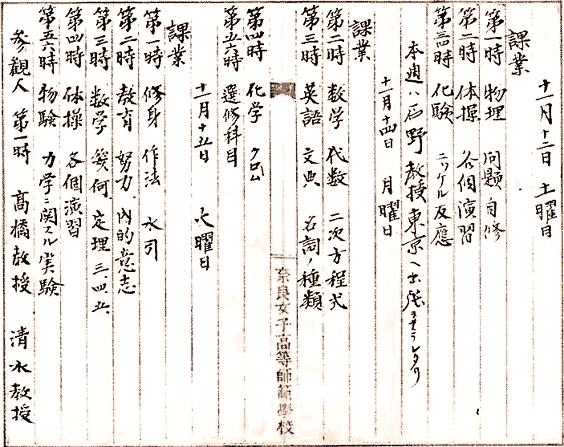 十一月十二日 土曜日
課業
第一時 物理 問題自修
第二時 体操 各個演習
第三四時 化験 ニッケル反應
本週ハ石野教授東京ヘ出張
十一月十四日 月曜日
課業
第二時 数学 代数 二次方程式
第三時 英語 文典 名詞ノ種類
奈良女子高等師範學校
第四時 化学 クロム
第五六時 選修科目
十一月十五日 火曜日
課業
第一時 修身 作法 水引
第二時 教育 努力、内的意志
第三時 数学 幾何 定理 三、四、五
第四時 体操 各個演習
第五六時 物験 力学ニ関スル実験
参観人 第一時 髙橋教授 清水教授